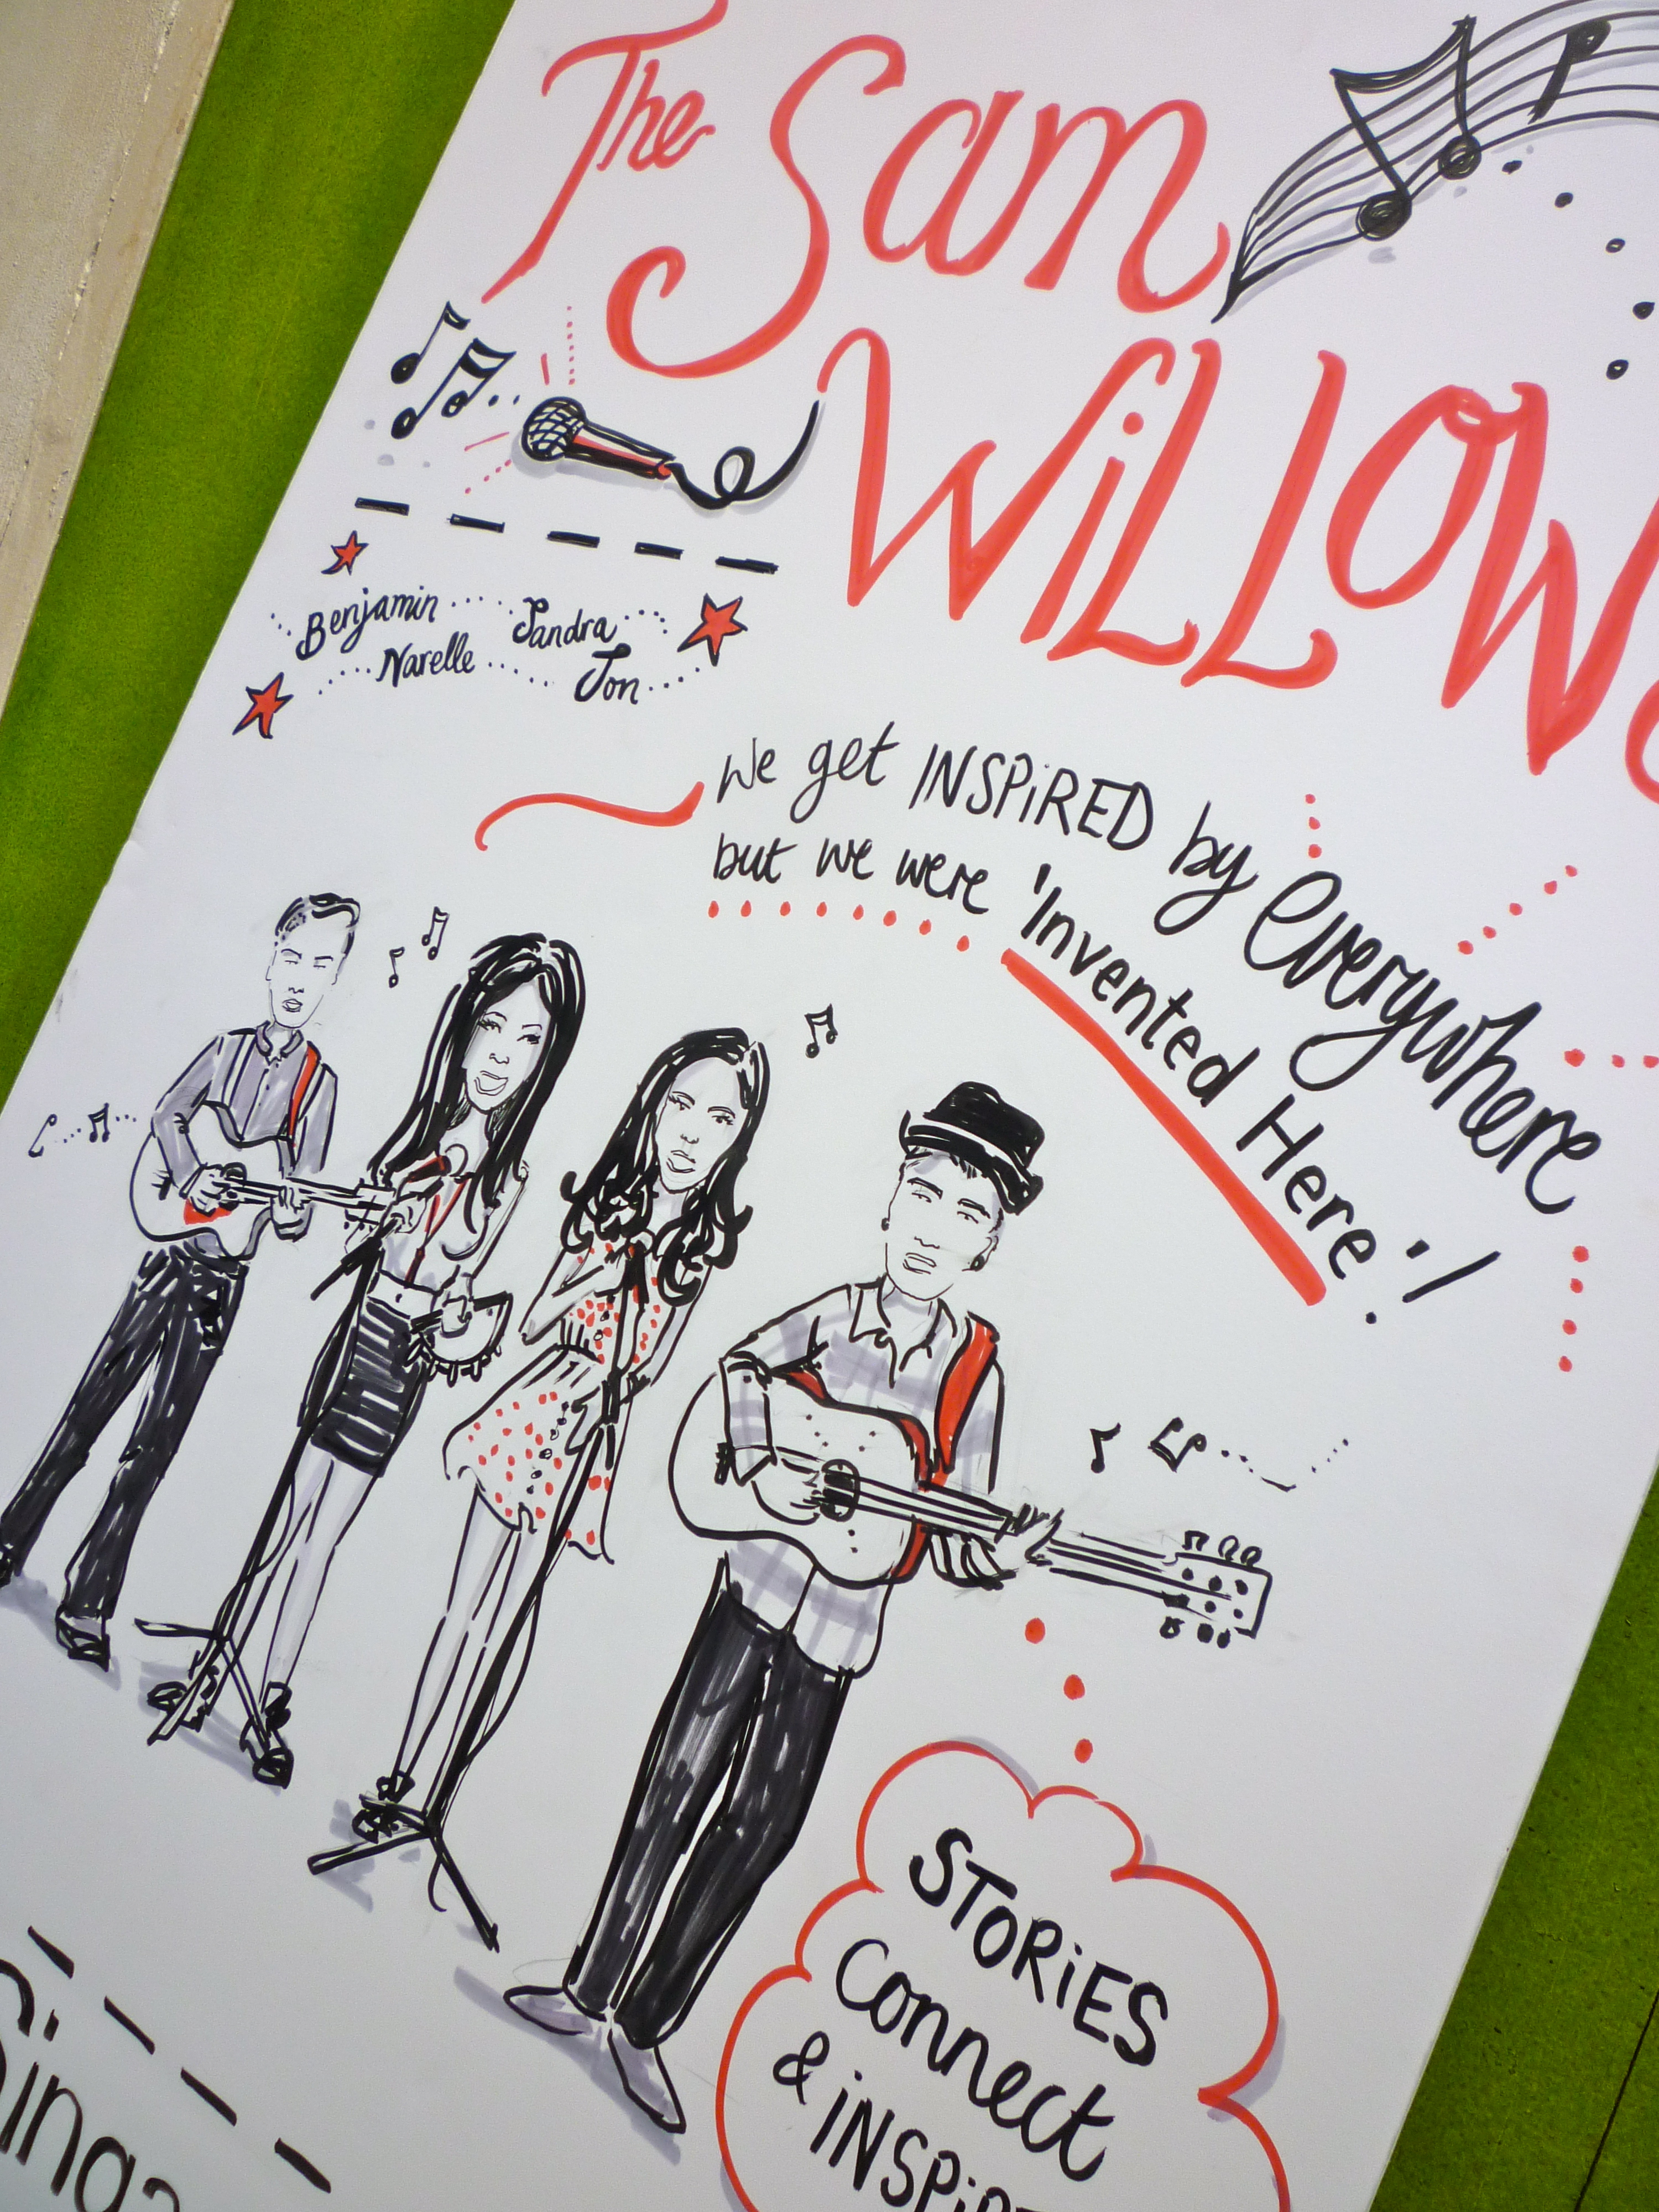 The Sam
Willows
Benjamin Sandra
Narelle Jon
We get INSPiRED by everywhere
but we were 'Invented Here'!
STORiES
Connect
& iNSPiRE